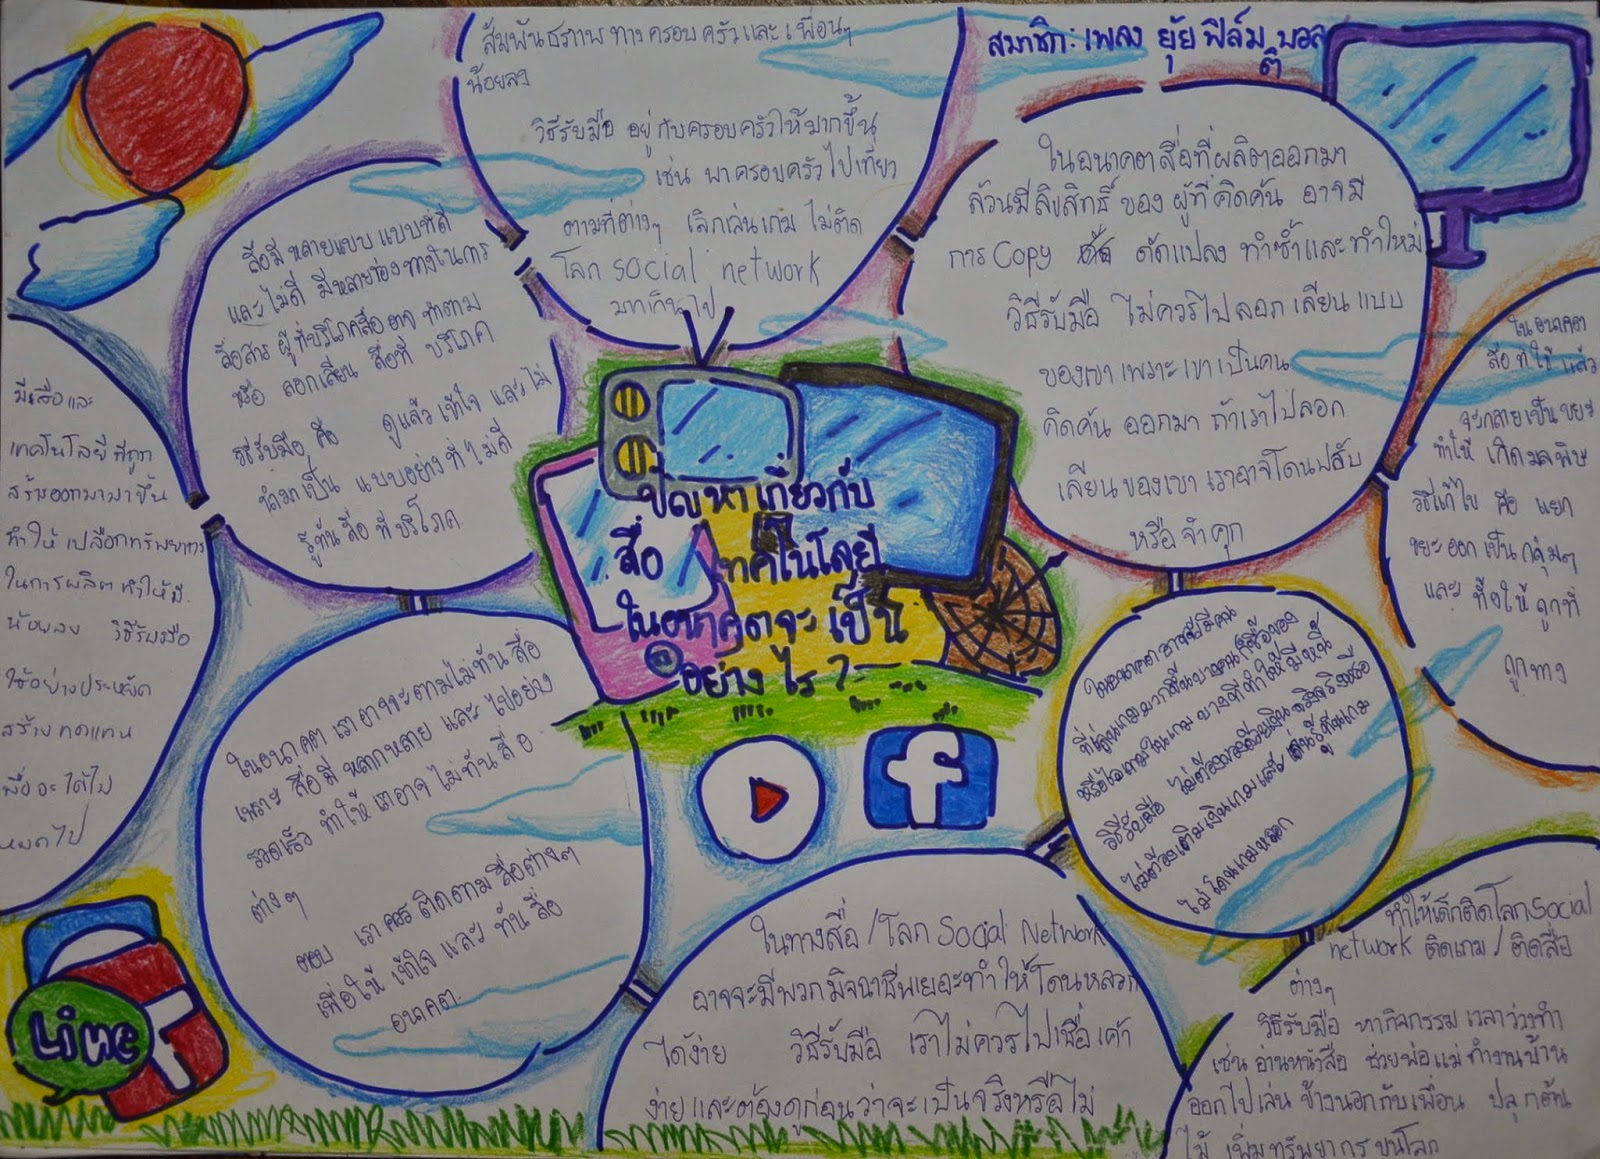 สมาชิก: เพลง ยุ้ย ฟิล์ม บอล
ติ
สัมพันธภาพทางครอบครัวและเพื่อนๆ
น้อยลง
วิธีรับมือ อยู่กับครอบครัวให้มากขึ้น
เช่น พาครอบครัวไปเที่ยว
ตามที่ต่างๆ เลิกเล่นเกม ไม่ติด
โลก social network
มากเกินไป
ในอนาคตสื่อที่ผลิตออกมา
ล้วนมีลิขสิทธิ์ของผู้ที่คิดค้น อาจมี
การ Copy ดัดแปลง ทำซ้ำและทำใหม่
วิธีรับมือ ไม่ควรไปลอกเลียนแบบ
ของเขาเพราะเขาเป็นคน
คิดค้น ออกมา ถ้าเราไปลอก
เลียนของเขาเราอาจโดนปรับ
หรือจำคุก
สื่อมีหลายแบบ แบบที่ดี
และไม่ดี มีหลายช่องทางในการ
สื่อสาร ผู้ที่บริโภคสื่ออาจ ทำตาม
หรือ ลอกเลียน สื่อที่ บริโภค
วิธีรับมือ คือ ดูแล้วเข้าใจ และไม่
นำมาเป็น แบบอย่างที่ไม่ดี
รู้ทันสื่อที่บริโภค
ปัญหาเกี่ยวกับ
สื่อ เทคโนโลยี
ในอนาคตจะเป็น
อย่างไร?
ในอนาคต
สื่อที่ใช้แล้ว
จะกลายเป็นขยะ
ทำให้เกิดมลพิษ
วิธีแก้ไข คือ แยก
ขยะออกเป็นกลุ่มๆ
และ ทิ้งให้ถูกที่
ถูกทาง
มีสื่อและ
เทคโนโลยีที่ถูก
สร้างออกมามากขึ้น
ทำให้เปลืองทรัพยากร
ในการผลิตทำให้มี
น้อยลง วิธีรับมือ
ใช้อย่างประหยัด
สร้างทดแทน
เพื่อจะได้ไม่
หมดไป
ในอนาคต เราอาจจะตามไม่ทันสื่อ
เพราะ สื่อมีหลากหลาย และไปอย่าง
รวดเร็ว ทำให้เราอาจไม่ทันสื่อ
ต่างๆ
ตอบ เราควรติดตามสื่อต่างๆ
เพื่อให้เข้าใจ และ ทันสื่อ
อนาคต.
ในอนาคตอาจจะมีคน
ที่เล่นเกมมากขึ้นบางคน ซื้อของ
หรือไอเทมในเกม บางทีทำให้มีหนี้
วิธีรับมือ ไม่ต้องจ่ายด้วยเงินจริงหรือ
ไม่ต้องเติมเงินเกมและ เรียนรู้ทันเกม
ไม่โดนเกมหลอก
f
Line
F
ในทางสื่อ/โลก Social Network
อาจจะมีพวกมิจฉาชีพเยอะทำให้โดนหลอก
ได้ง่าย วิธีรับมือ เราไม่ควรไปเชื่อเค้า
ง่ายและต้องดูก่อนว่าจะเป็นจริงหรือไม่
ทำให้เด็กติดโลก Social
network ติดเกม/ติดสื่อ
ต่างๆ
วิธีรับมือ หากิจกรรมเวลาว่างทำ
เช่น อ่านหนังสือ ช่วยพ่อแม่ทำงานบ้าน
ออกไปเล่นข้างนอกกับเพื่อน ปลูกต้น
ไม้ เพิ่มทรัพยากรบนโลก